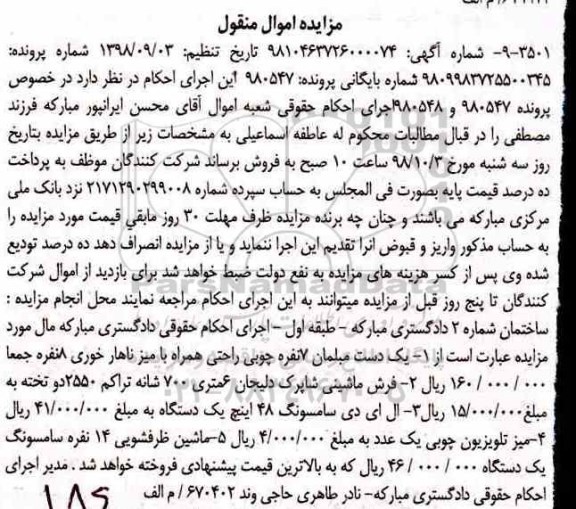 مزایده اموال منقول
۹-۳۵۰۱- شماره آگهی: ۹۸۱۰۴۶۳۷۲۶۰۰۰۰۷۴ تاریخ تنظیم: ۱۳۹۸/۰۹/۰۳ شماره پرونده:
۹۸۰۹۹۸۳۷۲۵۵۰۰۳۴۵ شماره بایگانی پرونده: ۹۸۰۵۴۷ این اجرای احکام در نظر دارد در خصوص
پرونده ۹۸۰۵۴۷ و ۹۸۰۵۴۸اجرای احکام حقوقی شعبه اموال آقای محسن ایرانپور مبارکه فرزند
مصطفی را در قبال مطالبات محکوم له عاطفه اسماعیلی به مشخصات زیر از طریق مزایده بتاریخ
روز سه شنبه مورخ ۹۸/۱۰/۳ ساعت ۱۰ صبح به فروش برساند شرکت کنندگان موظف به پرداخت
ده درصد قیمت پایه بصورت فی المجلس به حساب سپرده شماره ۲۱۷۱۲۹۰۲۹۹۰۰۸ نزد بانک ملی
مرکزی مبارکه می باشند و چنان چه برنده مزایده ظرف مهلت ۳۰ روز مابقی قیمت مورد مزایده را
به حساب مذکور واریز و قبوض انرا تقدیم این اجرا ننماید و یا از مزایده انصراف دهد ده درصد تودیع
شده وی پس از کسر هزینه های مزایده به نفع دولت ضبط خواهد شد برای بازدید از اموال شرکت
کنندگان تا پنج روز قبل از مزایده میتوانند به این اجرای احکام مراجعه نمایند محل انجام مزایده :
ساختمان شماره ۲ دادگستری مبارکه - طبقه اول – اجرای احکام حقوقی دادگستری مبارکه مال مورد
مزایده عبارت است از ۱- یک دست مبلمان ۷نفره چوبی راحتی همراه با میز ناهار خوری ۸نفره جمعا
۱۶۰/۰۰۰/۰۰۰ ریال ۲- فرش ماشینی شاپرک دلیجان ۶متری ۷۰۰ شانه تراکم ۲۵۵۰دو تخته به
مبلغ۱۵/۰۰۰/۰۰۰ ریال۳- ال ای دی سامسونگ ۴۸ اینچ یک دستگاه به مبلغ ۴۱/۰۰۰/۰۰۰ ریال
۴-میز تلویزیون چوبی یک عدد به مبلغ ۴/۰۰۰/۰۰۰ ریال ۵-ماشین ظرفشویی ۱۴ نفره سامسونگ
یک دستگاه ۴۶/۰۰۰/۰۰۰ ریال که به بالاترین قیمت پیشنهادی فروخته خواهد شد . مدیر اجرای
احکام حقوقی دادگستری مبارکه- نادر طاهری حاجی وند ۶۷۰۴۰۲/ م الف
ParsNamadData